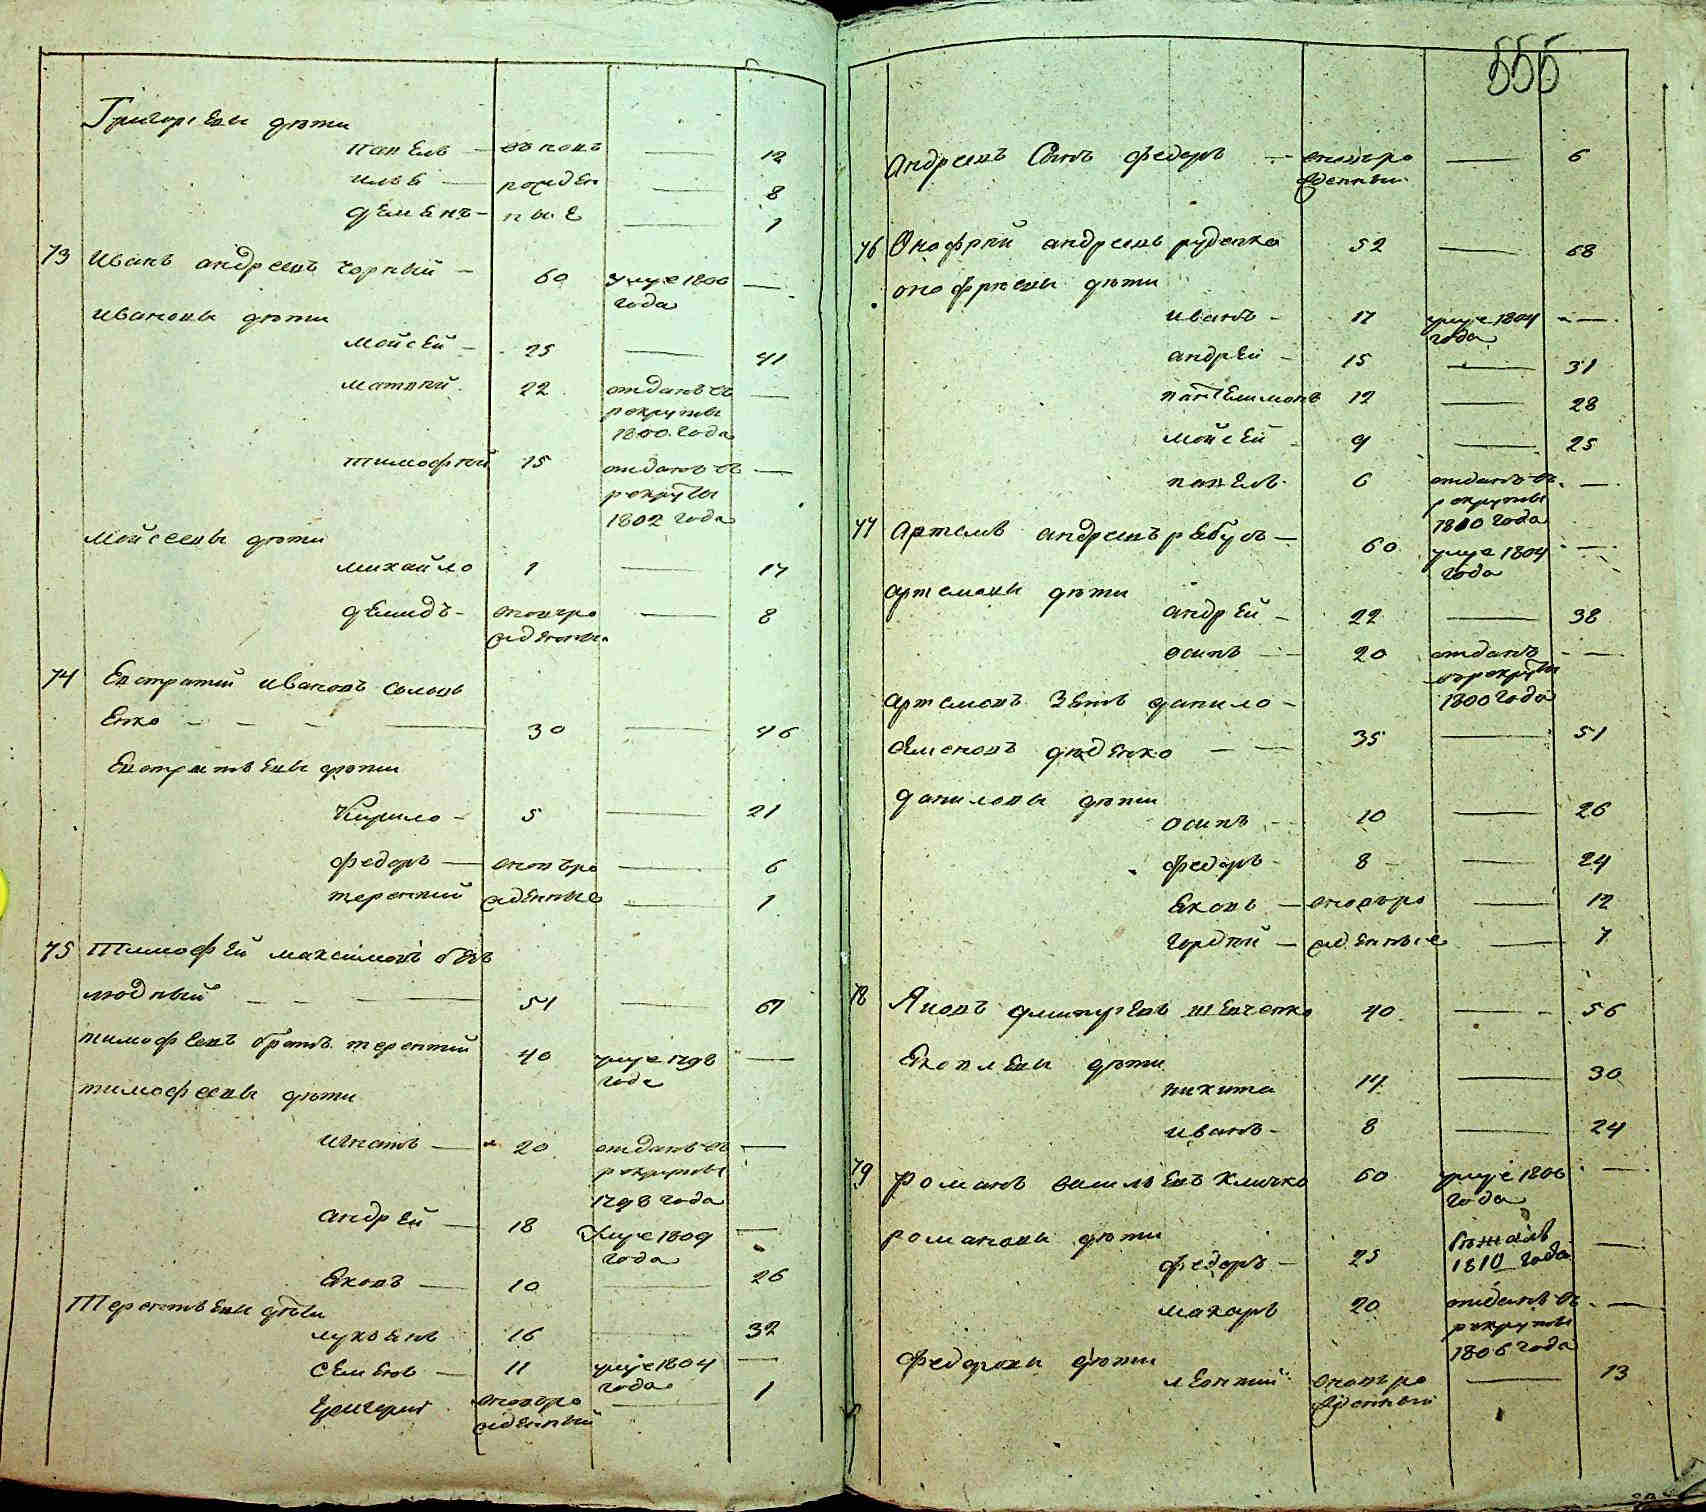 Григорьевы дѣти
павелъ — вновь — 12
илья — рожден — 8
деменъ — ные — 1
73 Иванъ андреевъ чорный — 60 умре 1806 —
года
ивановы дѣти
мойсей — 25 — 41
матвѣй 22 отданъ въ —
рекруты
1800 года
тимофѣй 15 отданъ въ —
рекруты
1802 года
мойсеевы дѣти
михайло 1 — 17
демидъ — вновьро — 8
жденны
74 Евстратий ивановъ
енко — — — 30 — 46
Евстратьевы дѣти
Кирило — 5 — 21
федоръ — вновъро — 6
терентий жденные — 1
75 Тимофѣй максимовъ без
людный — — 51 — 67
тимофеевъ братъ терентий 40 умре 1798 —
года
тимофеевы дѣти
игнатъ — 20 отданъ въ —
рекруты
1798 года
андрей — 18 умре 1809 —
года
Яковъ — 10 — 26
Терентьевы дѣти
лукьянъ 16 — 32
семенъ — 11 умре 1804 —
года
григорий вновьро — 1
жденный
555
андреевъ сынъ федоръ — вновьро — 6
жденный
76 Онофрий андреевъ руденко 52 — 68
онофриевы дѣти
иванъ — 17 умре 1804 —
года
андрей — 15 — 31
пантелимонъ 12 — 28
мойсей — 9 — 25
павелъ 6 отданъ въ —
рекруты
1810 года
77 артемъ андреевъ рябухъ — 60 умре 1804 —
года
артемовы дѣти
андрей — 22 — 38
осипъ — 20 отданъ —
върекруты
1800 года
артемовъ зять данило —
семеновъ дяденко — — 35 — 51
даниловы дѣти
осипъ — 10 — 26
федоръ — 8 — 24
Яковъ — вновьро — 12
гордий — жденные — 7
78 Яковъ дмитриевъ шевченко 40 — 56
Яковлевы дѣти
никита 14 — 30
иванъ — 8 — 24
79 романъ васильевъ кличко 60 умре 1806 —
года
романовы дѣти
федоръ — 25 бѣжалъ —
1810 года
макаръ 20 отданъ въ —
рекруты
1806 года
федоровы дѣти
леонтий вновьро — 13
жденный